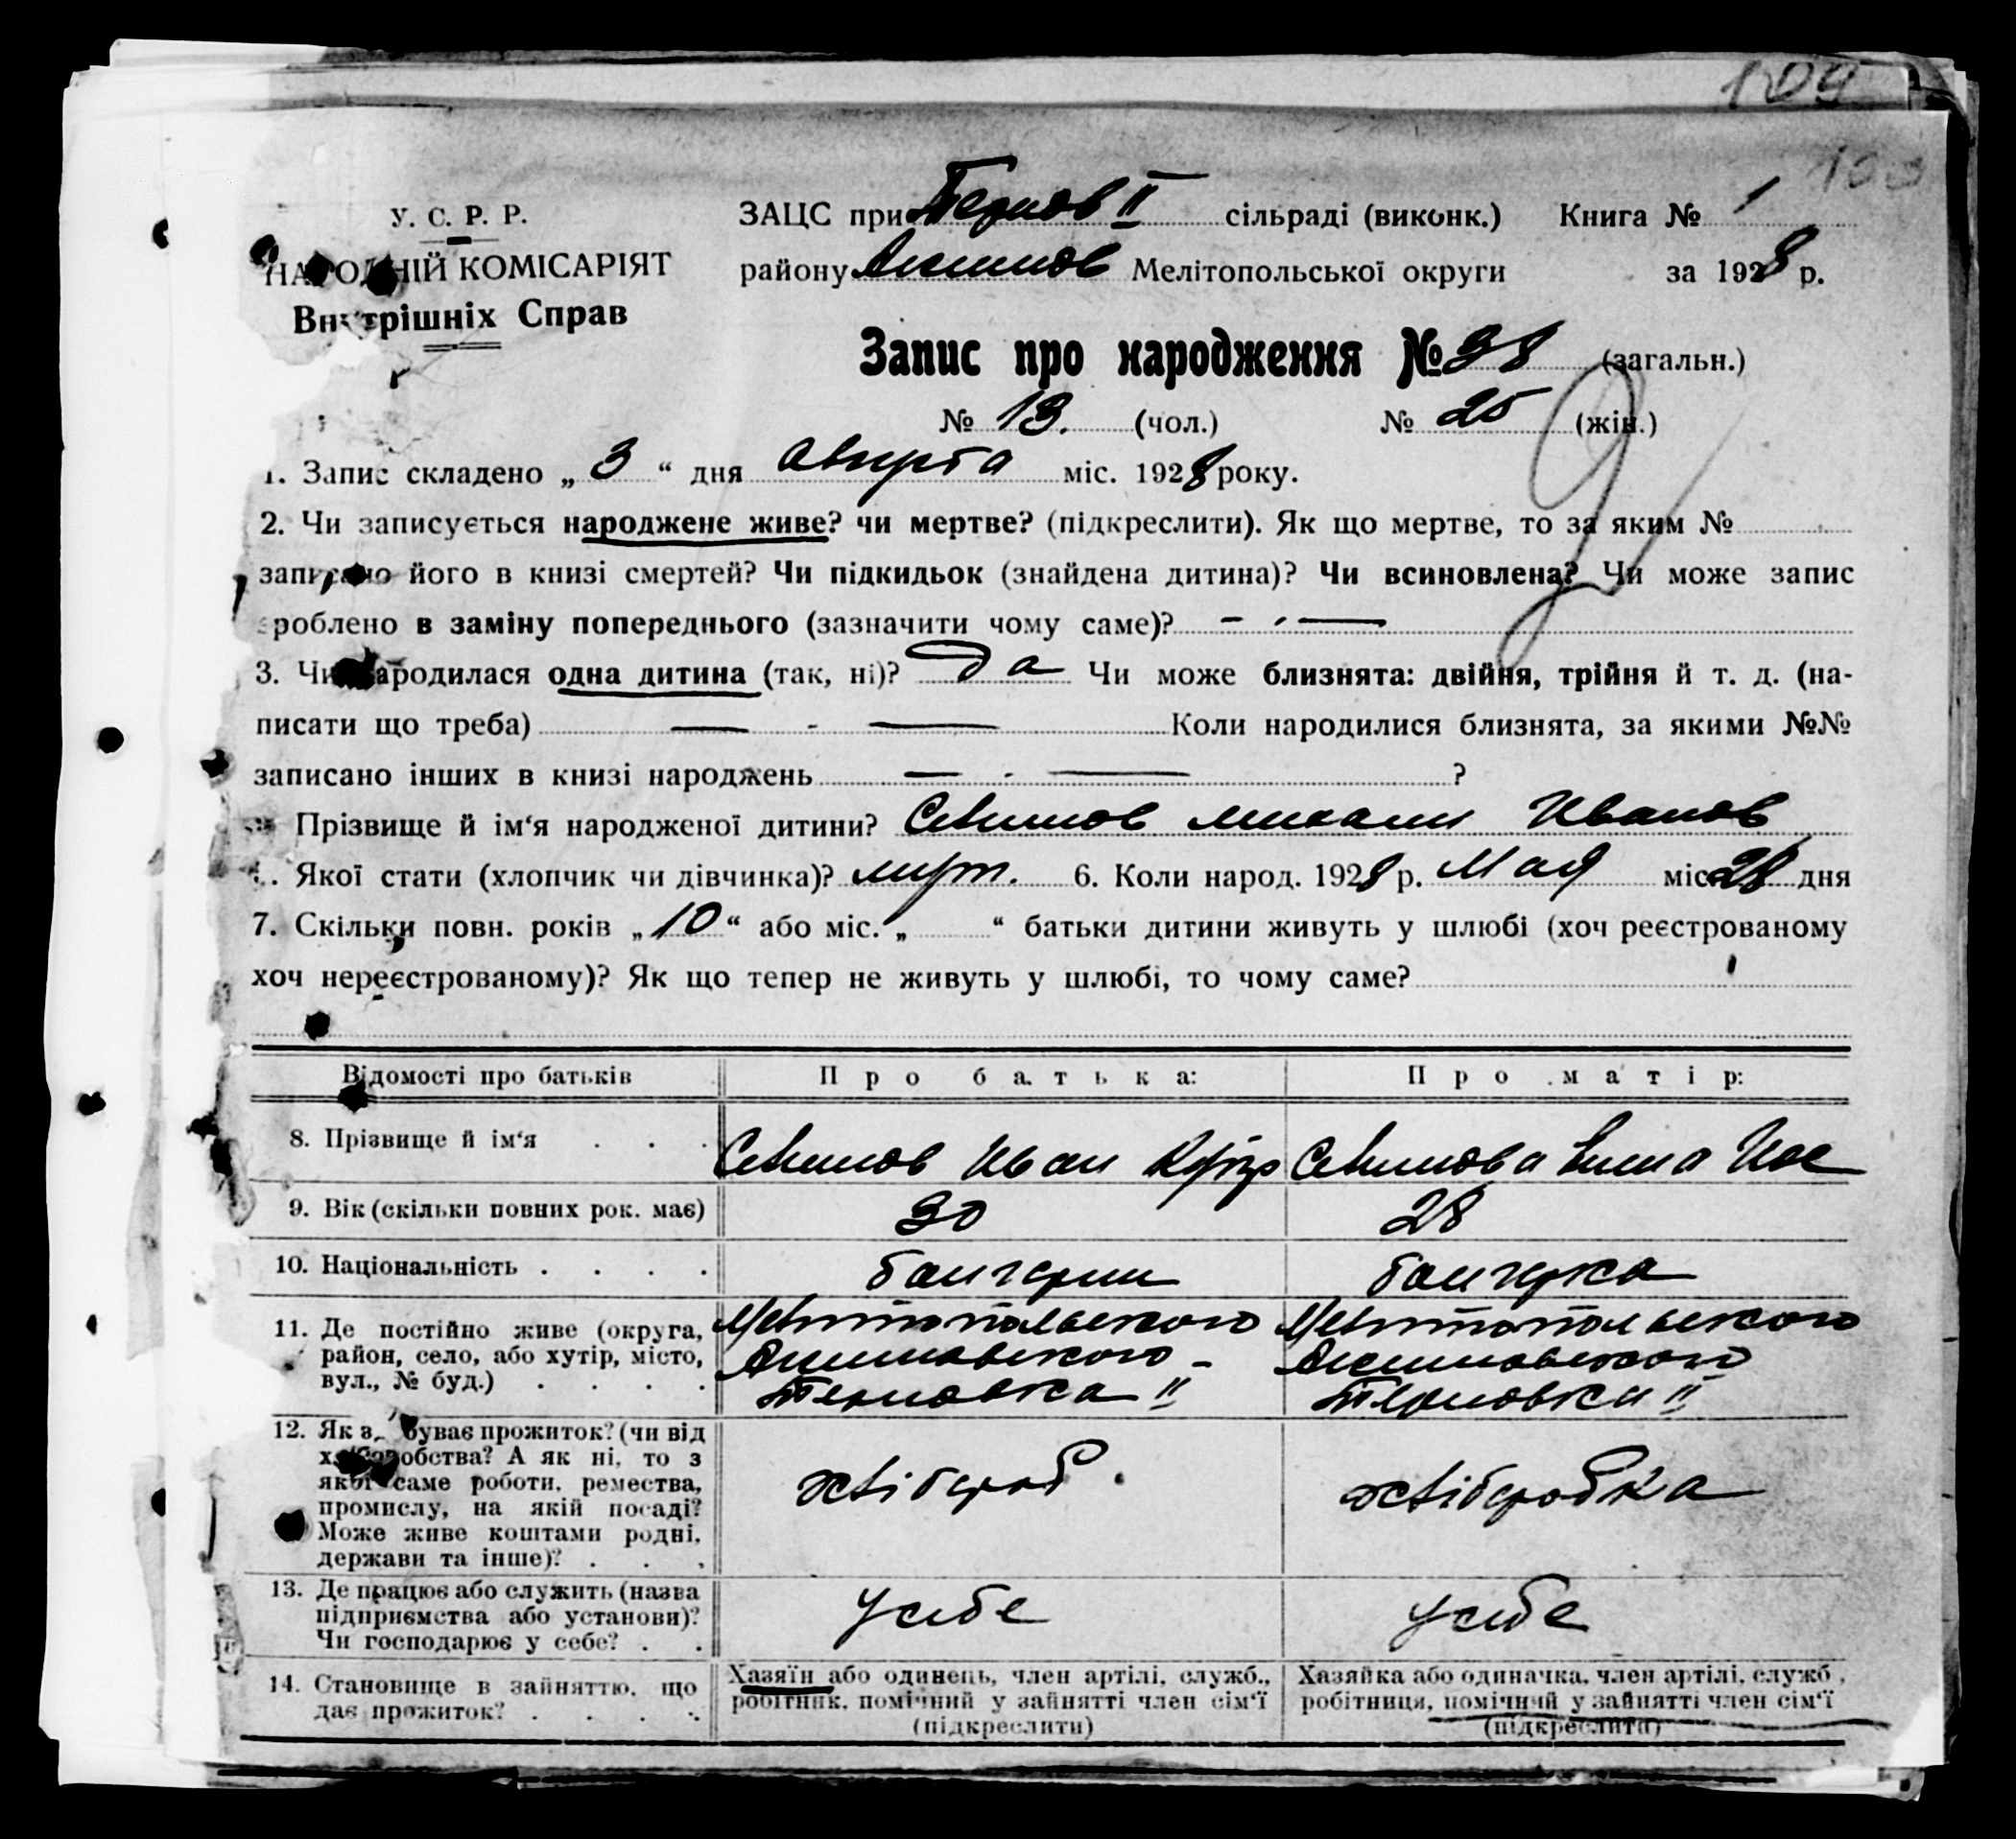 109
100
У. С. Р. Р.
НАРОДНІЙ КОМІСАРІЯТ
Внутрішніх Справ
ЗАЦС при Тернов II сільраді (виконк.) Книга № 1
району Акимов Мелітопольської округи за 1928 р.
Запис про народження № 38 (загальн.)
№ 13. (чол.) № 25 (жін.)
1. Запис складено „ 3 “ дня Августа міс. 1928 року.
2. Чи записується народжене живе? чи мертве? (підкреслити). Як що мертве, то за яким №
записано його в книзі смертей? Чи підкидьок (знайдена дитина)? Чи всиновлена? Чи може запис
зроблено в заміну попереднього (зазначити чому саме)? — · —
3. Чи народилася одна дитина (так, ні)? да Чи може близнята: двійня, трійня й т. д. (на-
писати що треба) — - — Коли народилися близнята, за якими №№
записано інших в книзі народжень — · — ?
Прізвище й ім‘я народженої дитини? Иванов
Якої стати (хлопчик чи дівчинка)? 6. Коли народ. 1928 р. Мая міс. 28 дня
7. Скільки повн. років „ 10 “ або міс. „ “ батьки дитини живуть у шлюбі (хоч реєстрованому
хоч нереєстрованому)? Як що тепер не живуть у шлюбі, то чому саме?
Відомості про батьків Про батька: Про матір:
8. Прізвище й ім‘я . . . Иван
9. Вік (скільки повних рок. має) 30 28
10. Національність . . . . болгарин болгарка
11. Де постійно живе (округа,
район, село, або хутір, місто,
вул., № буд.) . . . .
Мелитопольского
Акимовского -
Терновка II
Мелитопольского
Акимовского
Терновки II
12. Як здобуває прожиток? (чи від
хліборобства? А як ні, то з
якої саме роботи, ремества,
промислу, на якій посаді?
Може живе коштами родні,
держави та інше)? . . .
хлібороб.
хліборобка
13. Де працює або служить (назва
підприємства або установи)?
Чи господарює у себе? . .
у себе
у себе
14. Становище в зайняттю, що
дає прожиток? . . . .
Хазяїн або одинець, член артілі, служб.,
робітник, помічний у зайнятті член сім‘ї
(підкреслити)
Хазяйка або одиначка, член артілі, служб.,
робітниця, помічний у зайнятті член сім‘ї
(підкреслити)